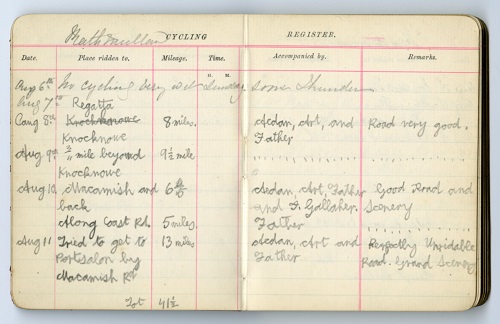 Rathmullan CYCLING REGISTER.
Date. Place ridden to. Mileage. Time. Accompanied by. Remarks.
H. M.
Aug 6th No cycling Very wet Sunday some Thunder
Aug 7th Regatta
Aug 8th Knocknowe 8 miles. Aedan, Art, and Road very good.
Knocknowe Father
Aug 9th mile beyond 9½ mile
Knocknowe
Aug 10 Macamish and 6 Aedan, Art, Father Good Road and
back and F. Gallaher. Scenery
Along Coast Rd. 5 miles. Father
Aug 11 Tried to get to 13 miles Aedan, Art and Perfectly Unridable
Portsalon by Father Road. Grand Scenery
Macamish Rd
Tot 41½